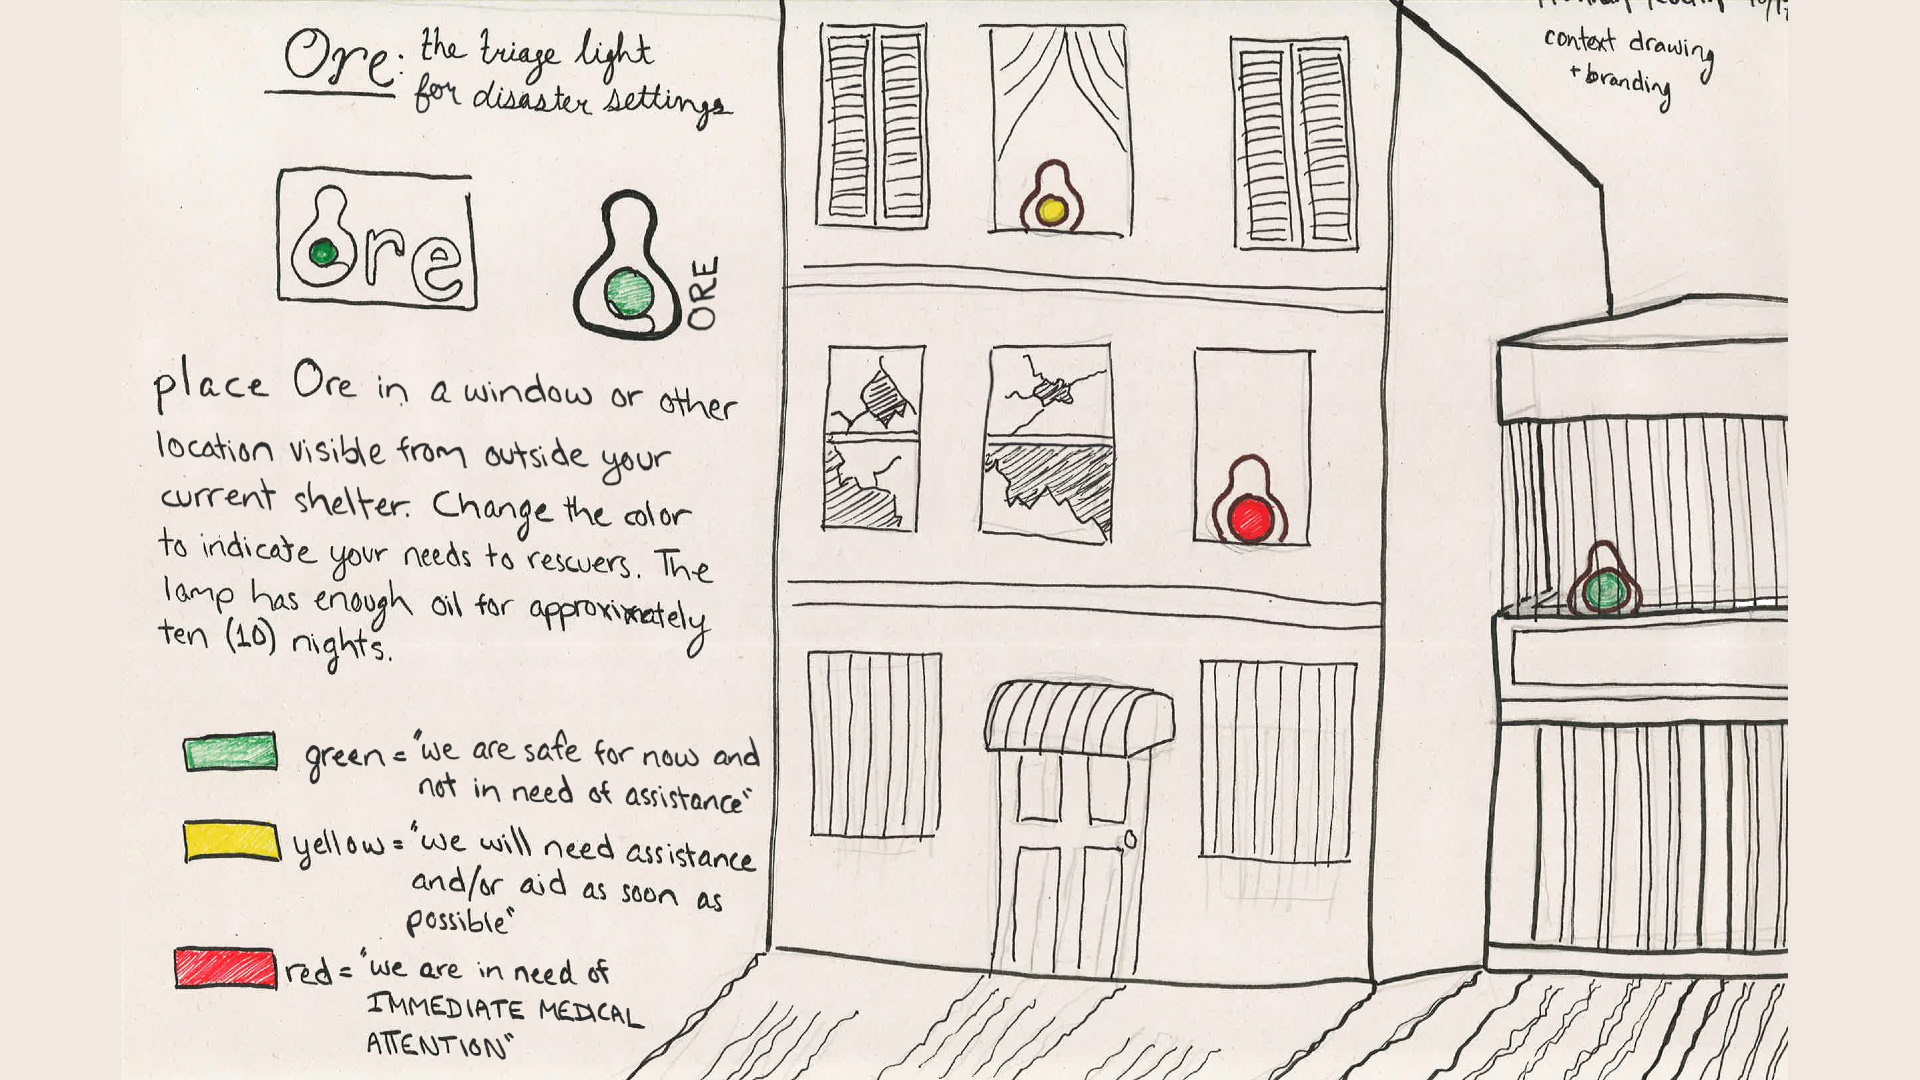 Ore: the triage light
for disaster settings
context drawing
+ branding
Ore
ORE
place Ore in a window or other
location visible from outside your
current shelter. Change the color
to indicate your needs to rescuers. The
lamp has enough oil for approximately
ten (10) nights.
green = "we are safe for now and
not in need of assistance"
yellow = "we will need assistance
and/or aid as soon as
possible"
red = "we are in need of
IMMEDIATE MEDICAL
ATTENTION"